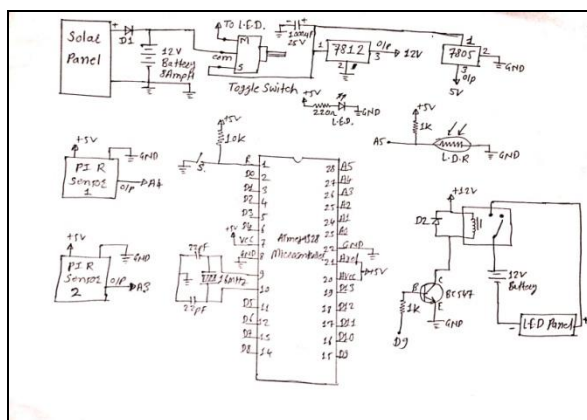 Solar Panel
+
D1
12V Battery 8AmpH
TO L.E.D.
M
com
S
Toggle Switch
1000µF 25V
1
7812
3
O/P
12V
2
1
7805
2
GND
3
O/P
5V
+5V
220Ω
L.E.D.
GND
+5V
1K
A5
L.D.R
GND
+5V
10K
S.
+5V
GND
PIR Sensor 1
O/P
A4
+5V
GND
PIR Sensor 2
O/P
A3
R 1
D0 2
D1 3
D2 4
D3 5
D4 6
+5V
VCC 7
GND 8
9
10
D5 11
D6 12
D7 13
D8 14
22pF
16MHz
22pF
ATmega328 Microcontroller
28 A5
27 A4
26 A3
25 A2
24 A1
23 A0
22 GND
21 Aref
20 AVCC
+5V
19 D13
18 D12
17 D11
16 D10
15 D9
+12V
D2
12V Battery
B
C
E
BC547
1K
D9
GND
LED Panel
-
+